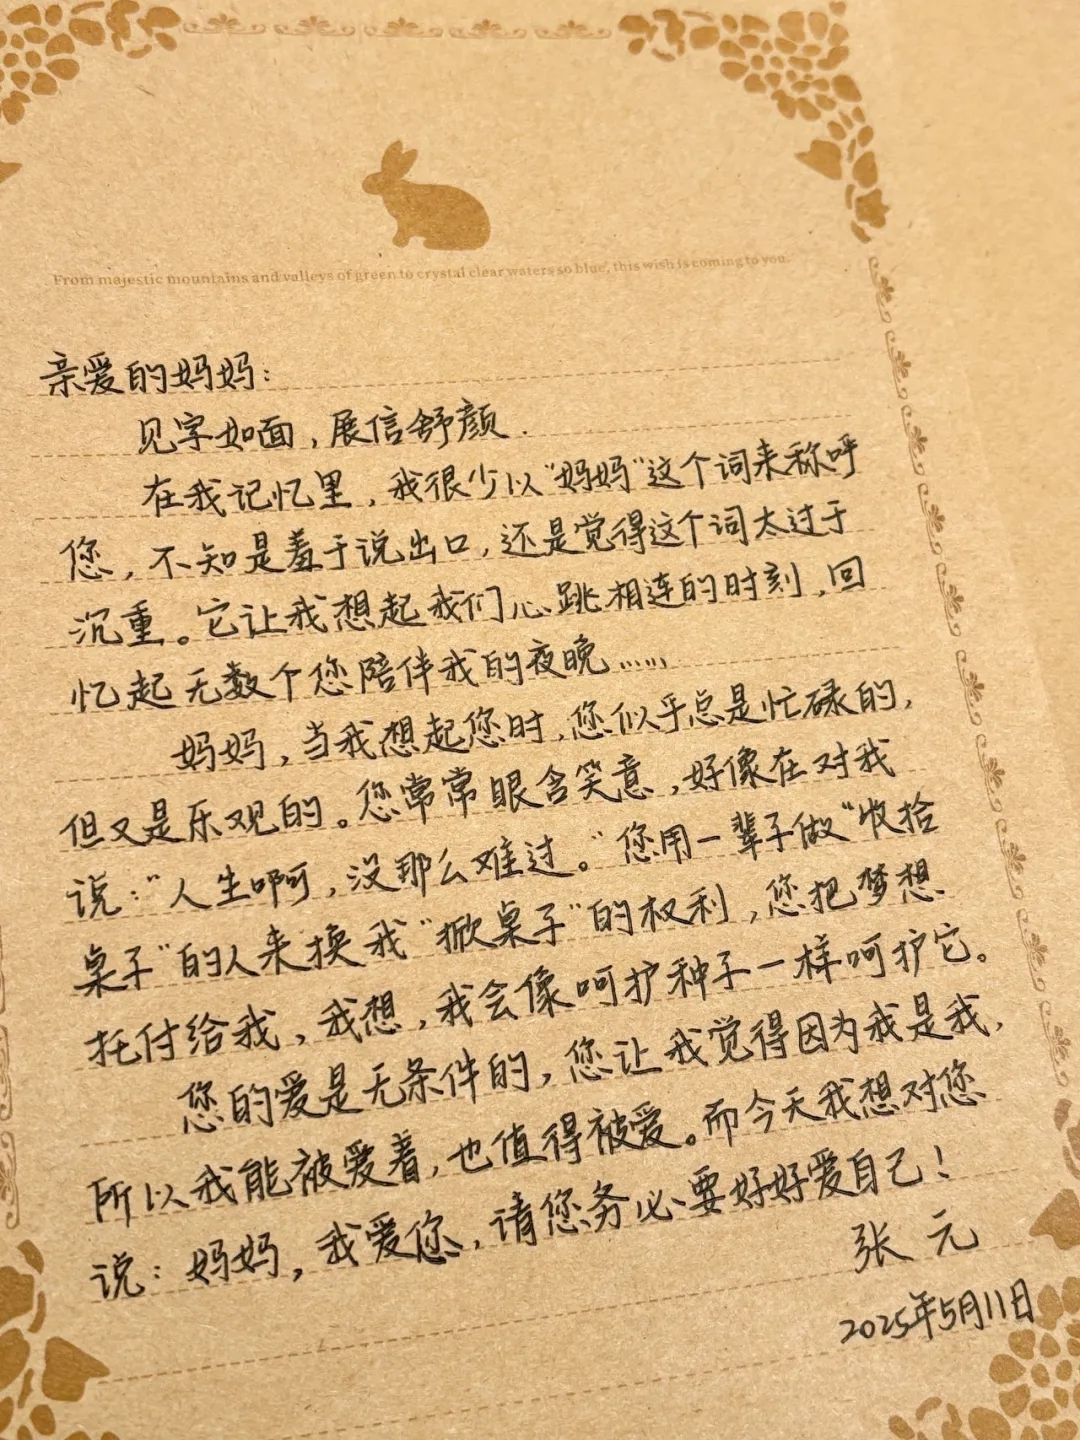 From majestic mountains and valleys of green to crystal clear waters so blue, this wish is coming to you.
亲爱的妈妈：
见字如面，展信舒颜．
在我记忆里，我很少以“妈妈”这个词来称呼
您，不知是羞于说出口，还是觉得这个词太过于
沉重。它让我想起我们心跳相连的时刻，回
忆起无数个您陪伴我的夜晚……
妈妈，当我想起您时，您似乎总是忙碌的，
但又是乐观的。您常常眼含笑意，好像在对我
说：“人生啊，没那么难过。”您用一辈子做“收拾
桌子”的人来换我“掀桌子”的权利，您把梦想
托付给我，我想，我会像呵护种子一样呵护它。
您的爱是无条件的，您让我觉得因为我是我，
所以我能被爱着，也值得被爱。而今天我想对您
说：妈妈，我爱您，请您务必要好好爱自己！
张元
2025年5月11日